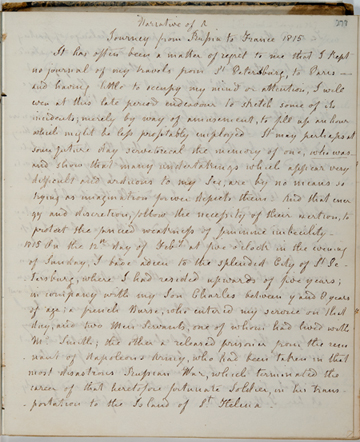 Narrative of a
378
Journey from Russia to France 1815
It has often been a matter of regret to me that I kept
no journal of my travels from St. Petersburg, to Paris —
and having little to occupy my mind or attention, I will
even at this late period endeavour to sketch some of its
incidents; merely by way of amusement, to fill up an hour
which might be less profitably employed. It may perhaps at
some future day recall the memory of one, who was
and show that many undertakings which appear very
difficult and arduous to my Sex, are by no means so
trying as imagination depicts them. And that ener-
gy and discretion, follow the necessity of their exertion, to
protect the fancied weakness of feminine imbecility.
1815 On the 12th day of Feby. at five o'clock in the evening
of Sunday, I bade adieu to the splendid City of St. Pe-
tersburg, where I had resided upwards of five years;
in company with my Son Charles between 7 and 8 years
of age: a french Nurse, who entered my service on that
day; and two Men Servants; one of whom had lived with
Mr. Smith; the other a released prisoner from the rem
nant of Napoleons Army, who had been taken in that
most disastrous Russian War, which terminated the
career of that heretofore fortunate Soldier, in his trans-
portation to the Island of St. Helena.